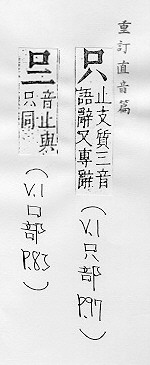 重訂直音篇
只
止支質三音
語辭又專辭
(V.1 只部 P.97)
音止與
只同
(V.1 口部 P.83)